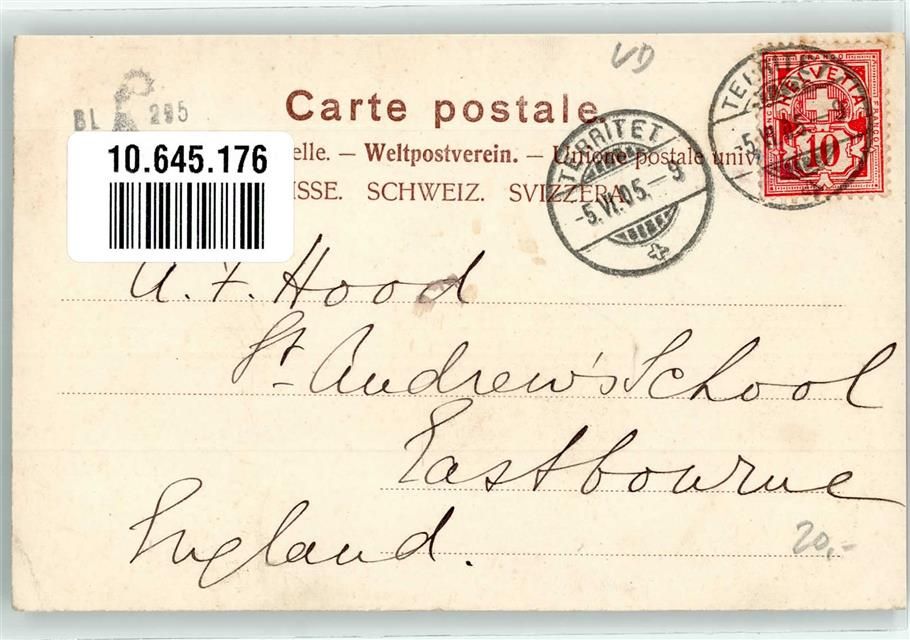 VD
BL 295
Carte postale.
10.645.176
elle. — Weltpostverein. — Unione postale univ
ISSE. SCHWEIZ. SVIZZERA.
TERRITET
-5.VI.05.-9
HELVETIA
10
A. F. Hood
St. Andrew's School
Eastbourne
England.
20,-